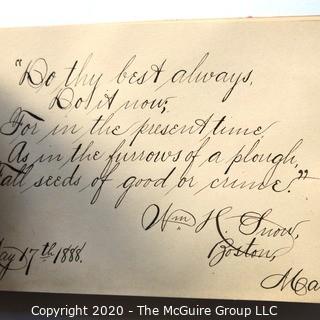 "Do thy best always,
Do it now;
For in the present time
As in the furrows of a plough,
all seeds of good or crime."
Wm H. Snow,
Boston,
May 17th 1888.
Copyright 2020 - The McGuire Group LLC